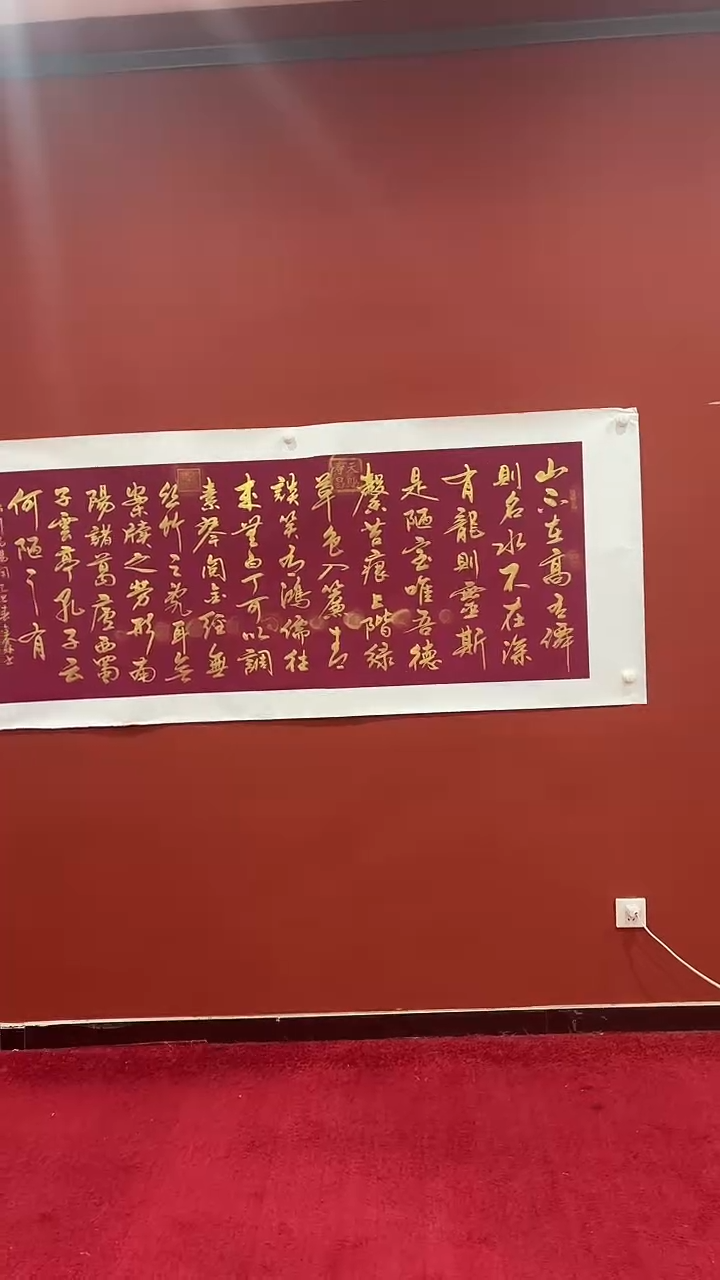 山不在高有僊
則名水不在深
有龍則靈斯
是陋室唯吾德
馨苔痕上階緑
草色入簾青
談笑有鴻儒往
來無白丁可以調
素琴閱金經無
絲竹之亂耳無
案牘之勞形南
陽諸葛廬西蜀
子雲亭孔子云
何陋之有